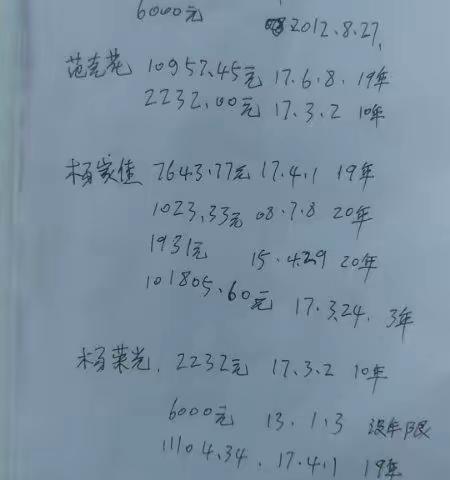 6000元 2012.8.27.
范克花 10957.45元 17.6.8. 19年
2232.00元 17.3.2 10年
杨家佳 7643.77元 17.4.1 19年
1023.33元 08.7.8 20年
1931元 15.4.29 20年
101805.60元 17.3.24. 3年
杨荣光. 2232元 17.3.2 10年
6000元 13.1.3 没年限
11104.34. 17.4.1 19年